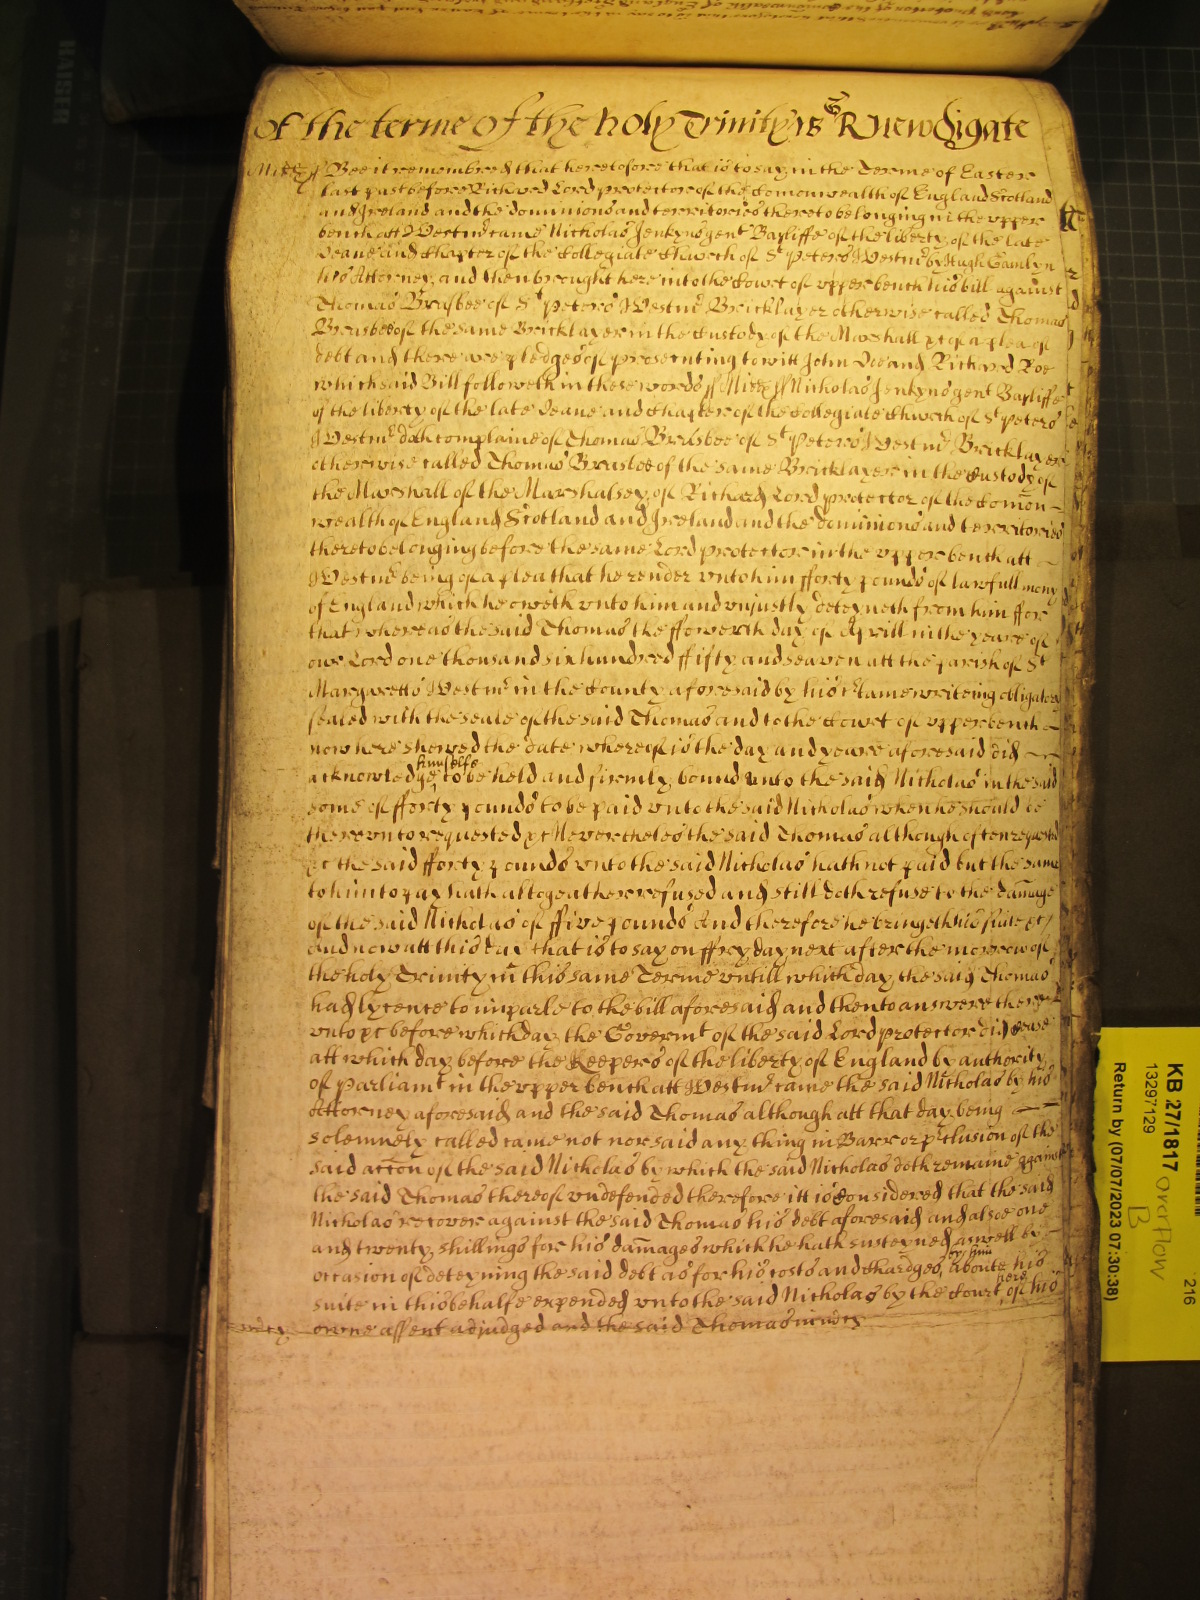 Of the terme of the holy Trinity 1659 R Newdigate
Midd ss Bee it remembred that heretofore that is to say in the Terme of Easter
last past before Richard Lord protector of the Comonwealth of England Scotland
and Ireland and the dominions and territories thereto belonging in the vpper
bench att Westmr came Nicholas Jenkyns gent Bayliffe of the liberty of the late
Deane and Chapter of the Collegiate Church of St Peters Westmr by Hugh
his Attorney, and then brought here into the Court of vpper bench his bill against
Thomas Brusbee of St Peters Westmr Bricklayer otherwise called Thomas
Brusbee of the same Bricklayer in the Custody of the Marshall &c of a plea of
debt and there are pledges of prosecuting to witt John Doe and Richard Roe
which said Bill followeth in these words ss Midd ss Nicholas Jenkyns gent Bayliffe
of the liberty of the late Deane and Chapter of the Collegiate Church of St Peters
Westmr doth complaine of Thomas Brusbee of St Peters Westmr Bricklayer
otherwise called Thomas Brusbee of the same Bricklayer in the Custody of
the Marshall of the Marshalsey of Richard Lord protector of the Comon
wealth of England Scotland and Ireland and the dominions and territories
thereto belonging before the same Lord protector in the vpper bench att
Westmr being of a plea that he render vnto him fforty pounds of lawfull mony
of England which he oweth vnto him and vnjustly deteyneth from him ffor
that whereas the said Thomas the ffowerth day of Aprill in the yeare of
our Lord one thousand six hundred ffifty and seaven att the parish of St
Margaretts Westmr in the County aforesaid by his certaine writeing obligatory
sealed with the seale of the said Thomas and to the Court of vpper bench
now here shewed the date whereof is the day and yeare aforesaid did
acknowledge himselfe to be held and firmly bound vnto the said Nicholas in the said
some of fforty pounds to be paid vnto the said Nicholas when he should be
therevnto requested &c Neverthelesse the said Thomas although often requested
&c the said fforty pounds vnto the said Nicholas hath not paid but the same
to him to pay hath altogeather refused and still doth refuse to the damage
of the said Nicholas of ffive pounds And therefore he bringeth his suite &c /
And now att this day that is to say on ffryday next after the morrow of
the holy Trinity in this same Terme vntill which day the said Thomas
had lycence to imparle to the bill aforesaid and then to answere there
vnto &c before which day the Govermt of the said Lord protector did cease
att which day before the Keepers of the liberty of England by authority
of parliamt in the vpper bench att Westmr came the said Nicholas by his
Attorney aforesaid and the said Thomas although att that day being
solemnely called came not nor said any thing in Barr or pclusion of the
said accon of the said Nicholas by which the said Nicholas doth remaine against
the said Thomas thereof vndefended therefore itt is Considered that the said
Nicholas recover against the said Thomas his debt aforesaid and alsoe one
and twenty shillings for his damages which he hath susteyned aswell by
occasion of deteyning the said debt as for his costs and Chardges by him aboute his
suite in this behalfe expended vnto the said Nicholas by the Court here of his
mercy owne assent adjudged and the said Thomas in mercy
KB 27/1817
13297129
overflow
B
Return by (07/07/2023 07:30:38)
216
KAISER